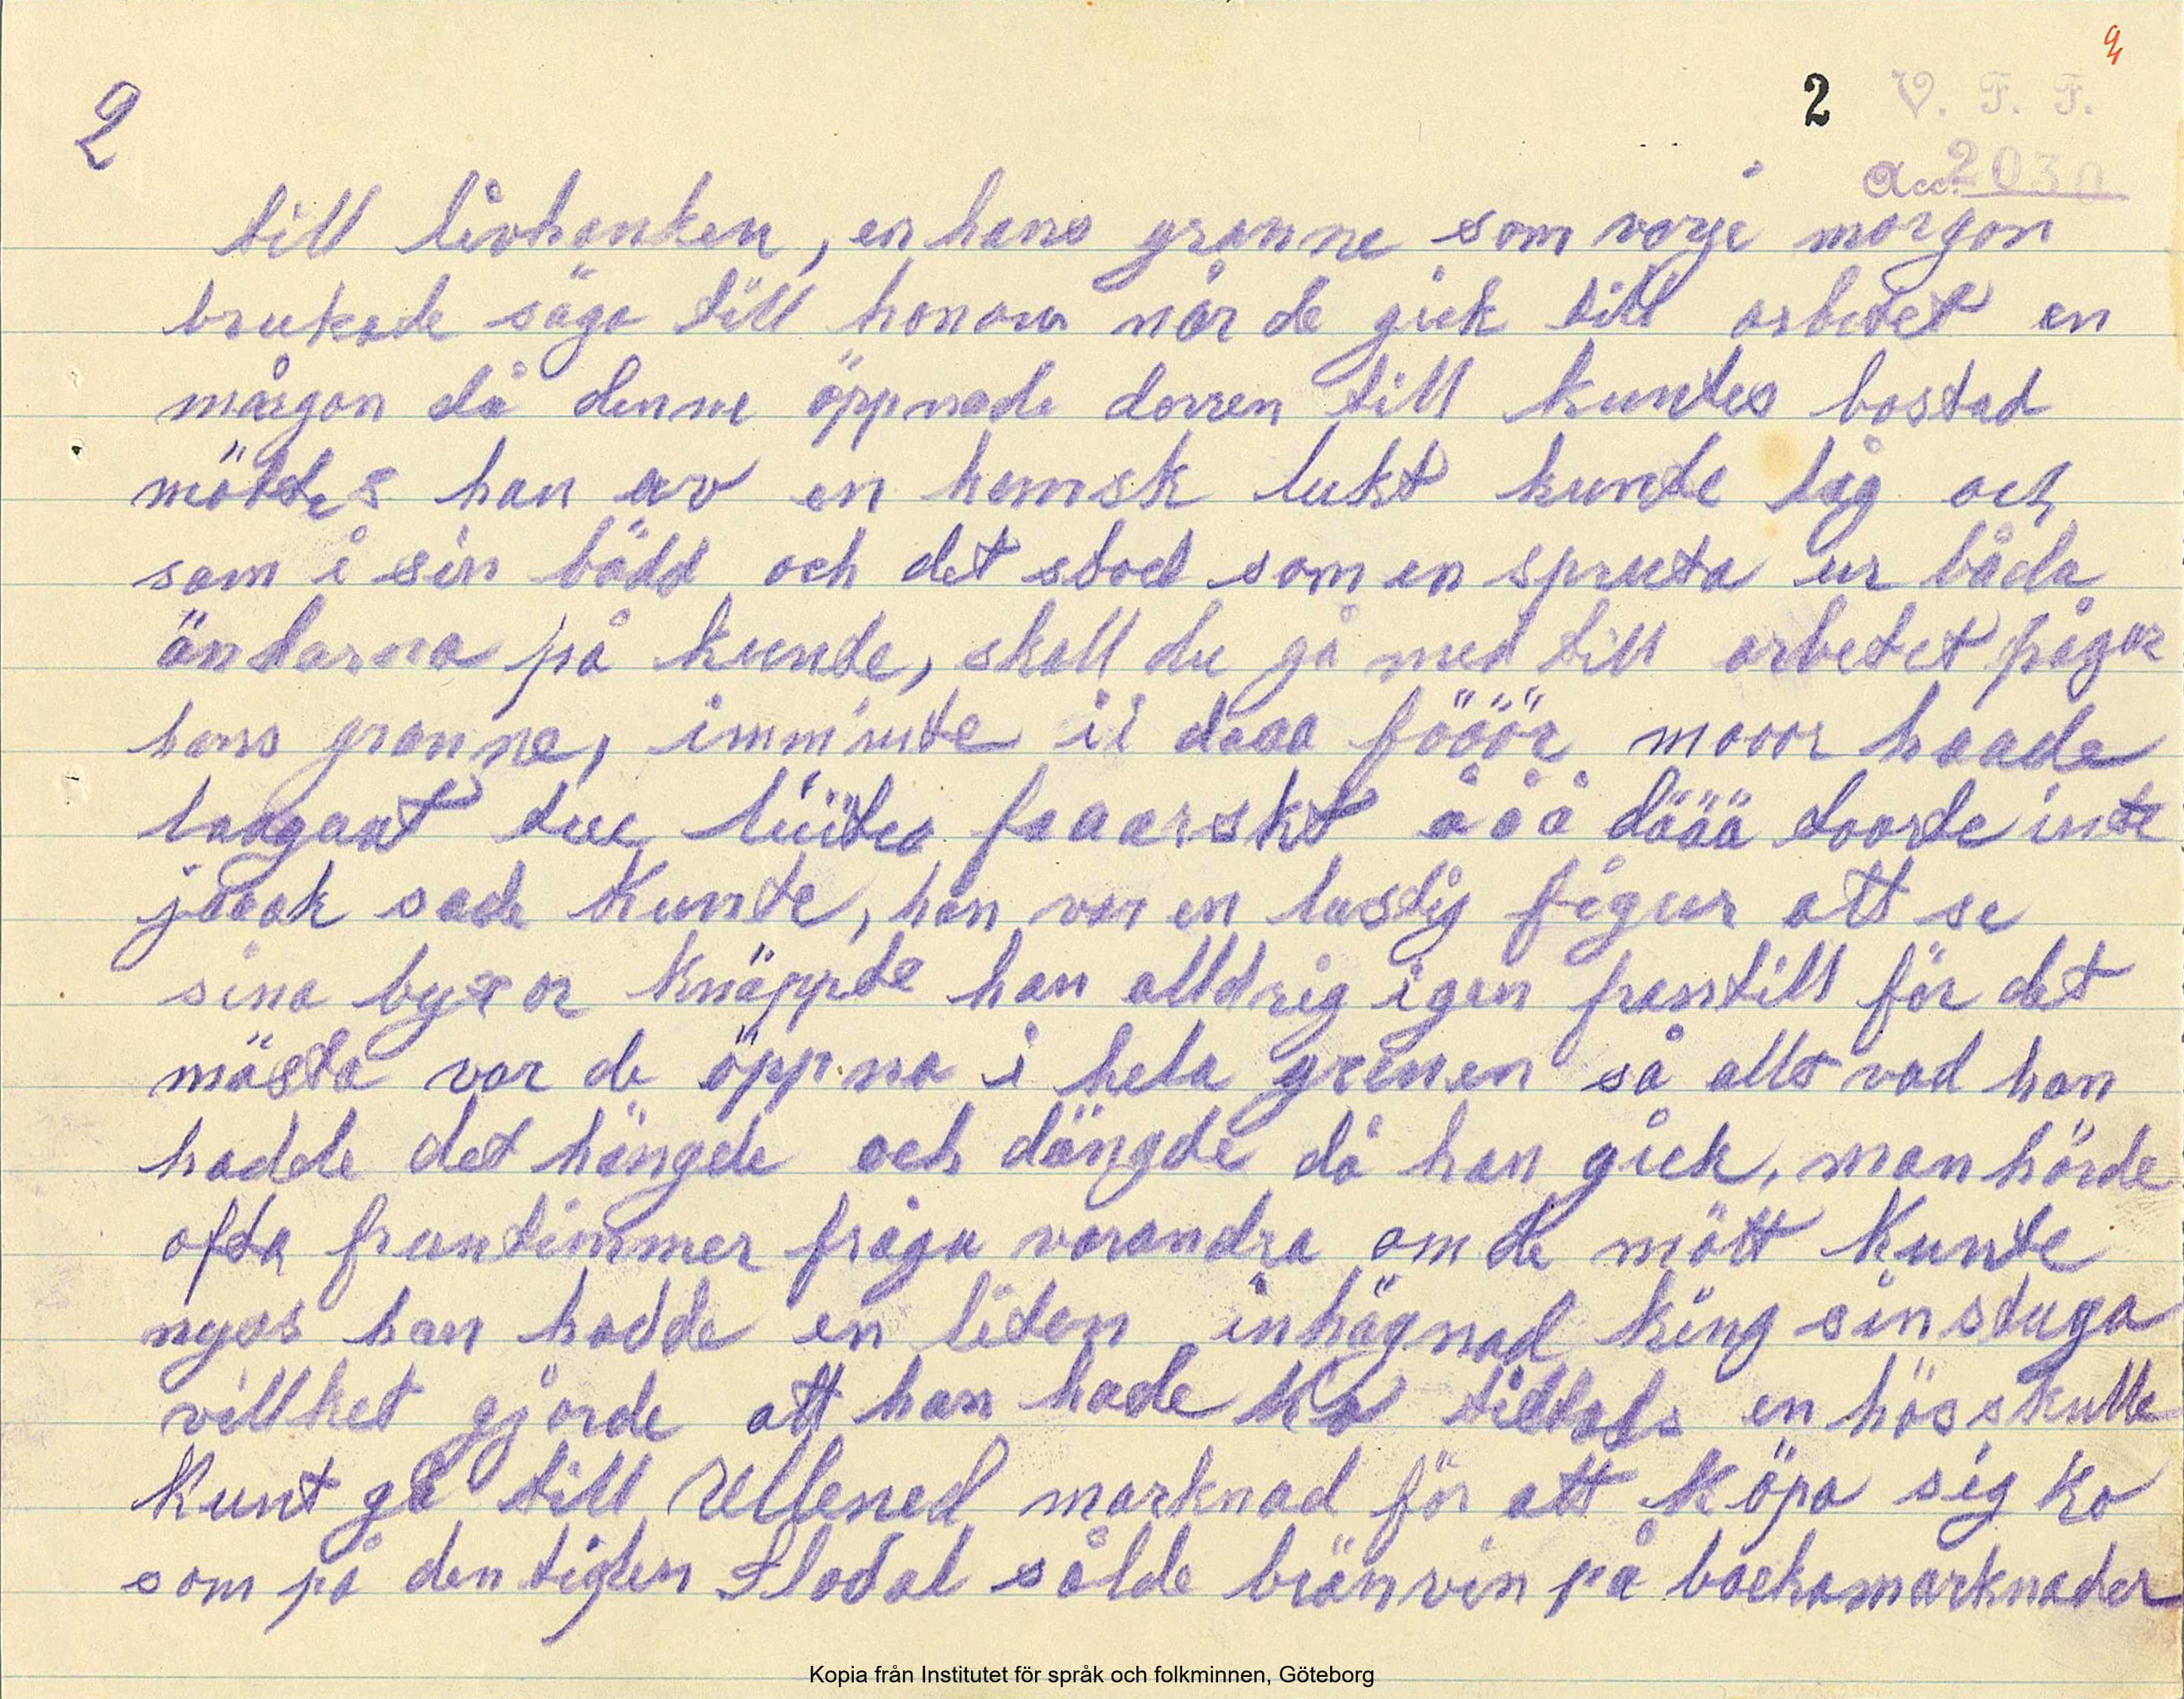 9
2
2 V. F. F.
Acc. 2030
till livhanken, en hans granne som varje morgon
brukade säga till honom når de gick till arbetet en
mårgon då denne öppnade dorren till kuntes bostad
möttes han av en hemsk lukt kunte låg och
sam i sin bädd och det stod som en spruta ur båda
ändarna på kunte, skall du gå med till arbetet frågar
hans granne, imminte ii daaa fööör mooor haade
laagaat tee lüüte faaarskt ååå dööö toorde inte
jaaak sade Kunte, han var en lustig figur att se
sina byxor knäppte han alldrig igen framtill för det
mästa var de öppna i hela grenen så allt vad han
hadde det hängde och dängde då han gick, man hörde
ofta fruntimmer fråga varandra om de mött Kunte
nyss han hadde en liten inhägnad king sin stuga
villket gjörde att han hade ko en hösskulle
Kunt gå till Ullened marknad för att köpa sig ko
som på den tiden Flodal sålde bränvin på backamarknader
Kopia från Institutet för språk och folkminnen, Göteborg